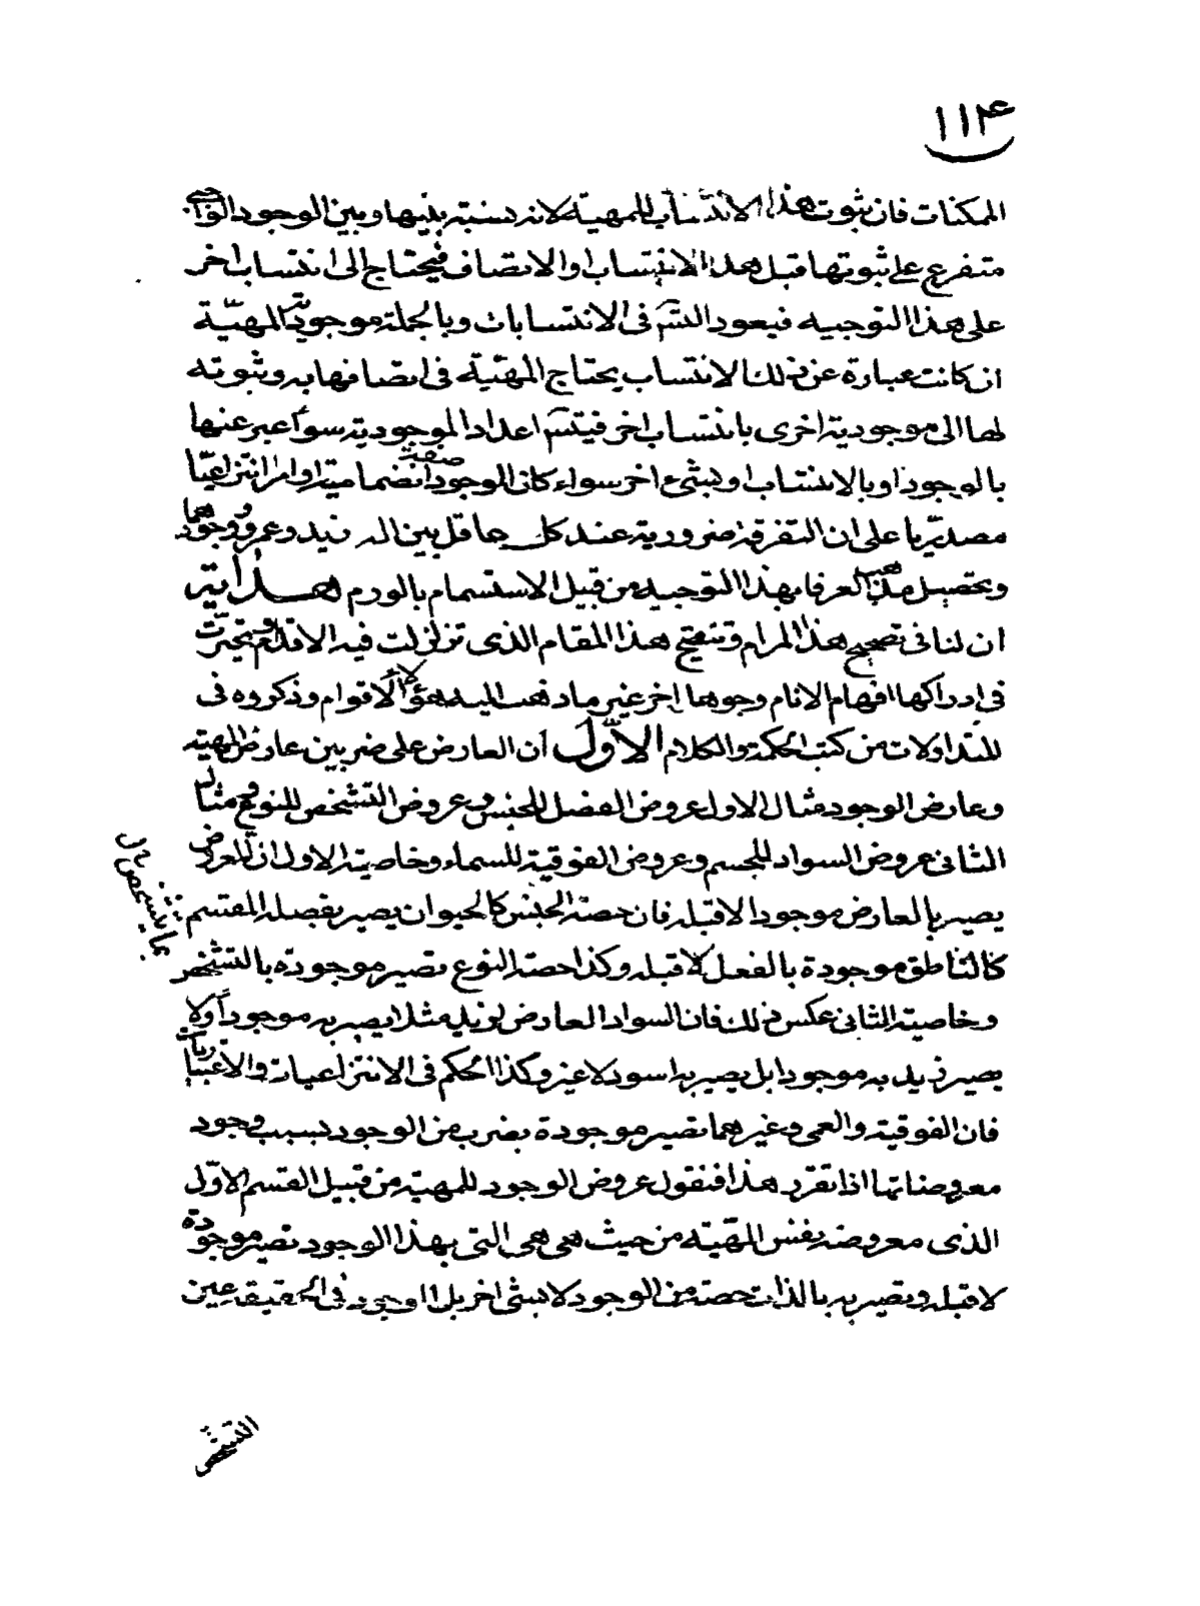 ١١٤
الممكنات فان ثبوت هذا الانتساب للمهية لانه نسبة بينها وبين الوجود الواجبى
متفرع على ثبوتها قبل هذا الانتساب او الاتصاف فيحتاج الى انتساب اخر
على هذا التوجيه فيعود التسَ فى الانتسابات وبالجملة موجودية المهيّة
ان كانت عبارة عن ذلك الانتساب يحتاج المهيّة فى اتصافها به وثبوته
لها الى موجودية اخرى بانتساب اخر فيتسَ اعداد الموجودية سواء عبر عنها
بالوجود او بالانتساب او بشىء اخر سواء كان الوجود صفة انضمامية او امرا انتزاعيّا
مصدريّا على ان التفرقة ضرورية عند كل عاقل بين اله زيد وعمرو ووجودهما
وتحصيل مذهب العرفاء بهذا التوجيه من قبيل الاستسمام بالورم هداية
ان لنا فى تصحيح هذا المرام وتنقيح هذا المقام الذى تزلزلت فيه الاقدام وتحيّرت
فى ادراكها افهام الانام وجوها اخر غير ما ذهب اليه هؤلاء الاقوام وذكروه فى
المتداولات من كتب الحكمة والكلام الاوّل ان العارض على ضربين عارض المهية
وعارض الوجود مثال الاول عروض الفصل للجنس وعروض التشخص للنوع ومثال
الثانى عروض السواد للجسم وعروض الفوقية للسماء وخاصية الاول ان المعروض
يصير بالعارض موجودا لا قبله فان حصة الجنس كالحيوان يصير بفصله المقسم
كالناطق موجودة بالفعل لا قبله وكذا حصة النوع تصير موجودة بالتشخص
وخاصية الثانى عكس ذلك فان السواد العارض لزيد مثلا يصير به موجوداً ولا
يصير زيد به موجودا بل يصير به اسود لا غير وكذا الحكم فى الانتزاعيات والاعتباريات
فان الفوقية والعمى وغيرهما تصير موجودة بضرب من الوجود بسبب وجود
معروضاتها اذا تقرر هذا فنقول عروض الوجود للمهية من قبيل القسم الاوّل
الذى معروضه نفس المهيّة من حيث هى هى التى بهذا الوجود تصير موجودة
لا قبله وتصير به بالذات حصة من الوجود لا بشىء اخر بل الوجود فى الحقيقة عين
التشخص